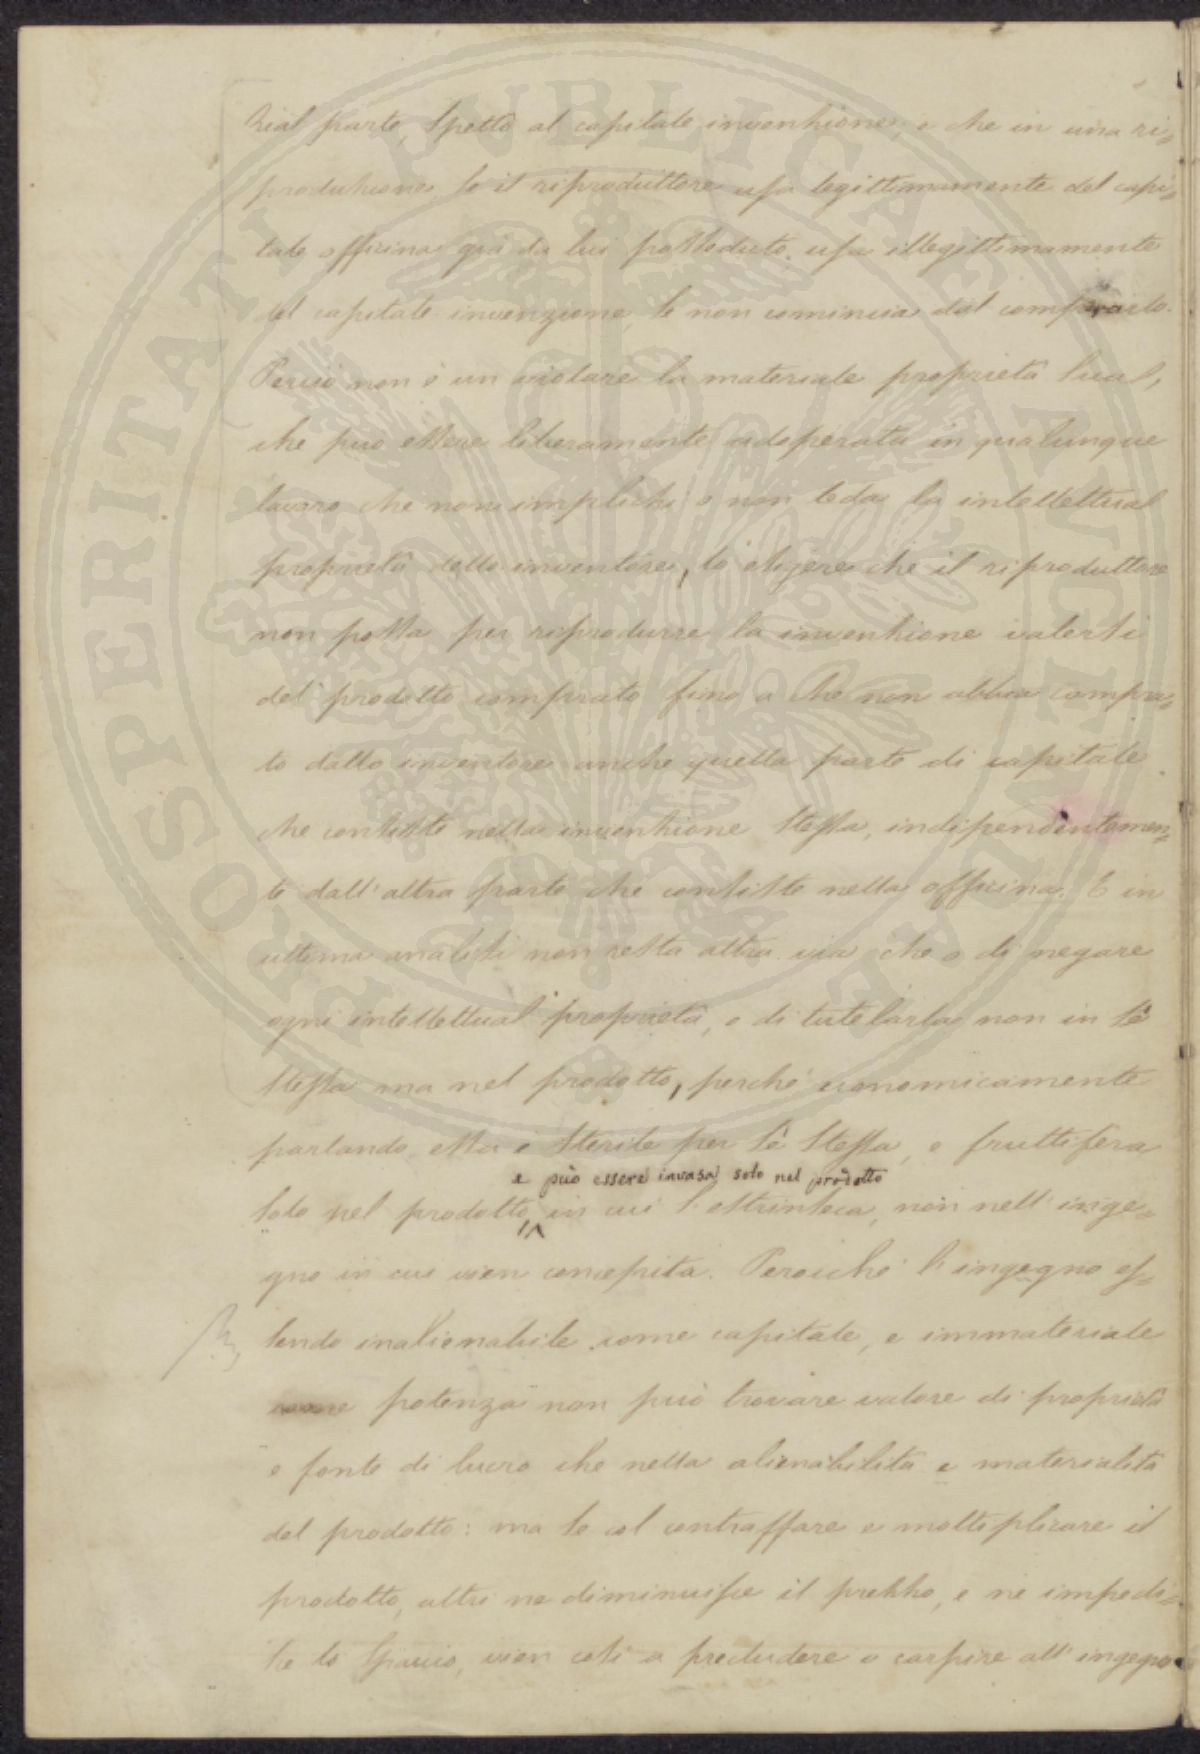 zial parte, spetta al capitale invenzione, e che in una ri=
produzione, se il riproduttore usa legittimamente del capi=
tale officina già da lui posseduto, usa illegittimamente
del capitale invenzione, se non comincia dal comprarlo.
Perciò non è un violare la materiale proprietà sua,
che può essere liberamente adoperata in qualunque
lavoro che non implichi o non leda la intellettual
proprietà dello inventore, lo esigere che il riproduttore
non possa per riprodurre la invenzione valersi
del prodotto comprato fino a che non abbia compra=
to dallo inventore anche quella parte di capitale
che consiste nella invenzione stessa, indipendentemen=
te dall'altra parte che consiste nella officina. E in
ultima analisi non resta altra via che o di negare
ogni intellettual proprietà, o di tutelarla non in sè
stessa ma nel prodotto, perchè economicamente
parlando essa è sterile per sè stessa, e fruttifera
e può essere invasa solo nel prodotto
solo nel prodotto, in cui s'estrinseca, non nell'inge=
gno in cui vien concepita. Perocchè l'ingegno es=
sendo inalienabile come capitale, e immateriale
come potenza non può trovare valore di proprietà
e fonte di lucro che nella alienabilità e materialità
del prodotto: ma se col contraffare e moltiplicare il
prodotto, altri ne diminuisce il prezzo, e ne impedi=
sce lo spaccio, vien così a precludere o carpire all'ingegno
PROSPERITATI PVBLICAE AVGENDAE